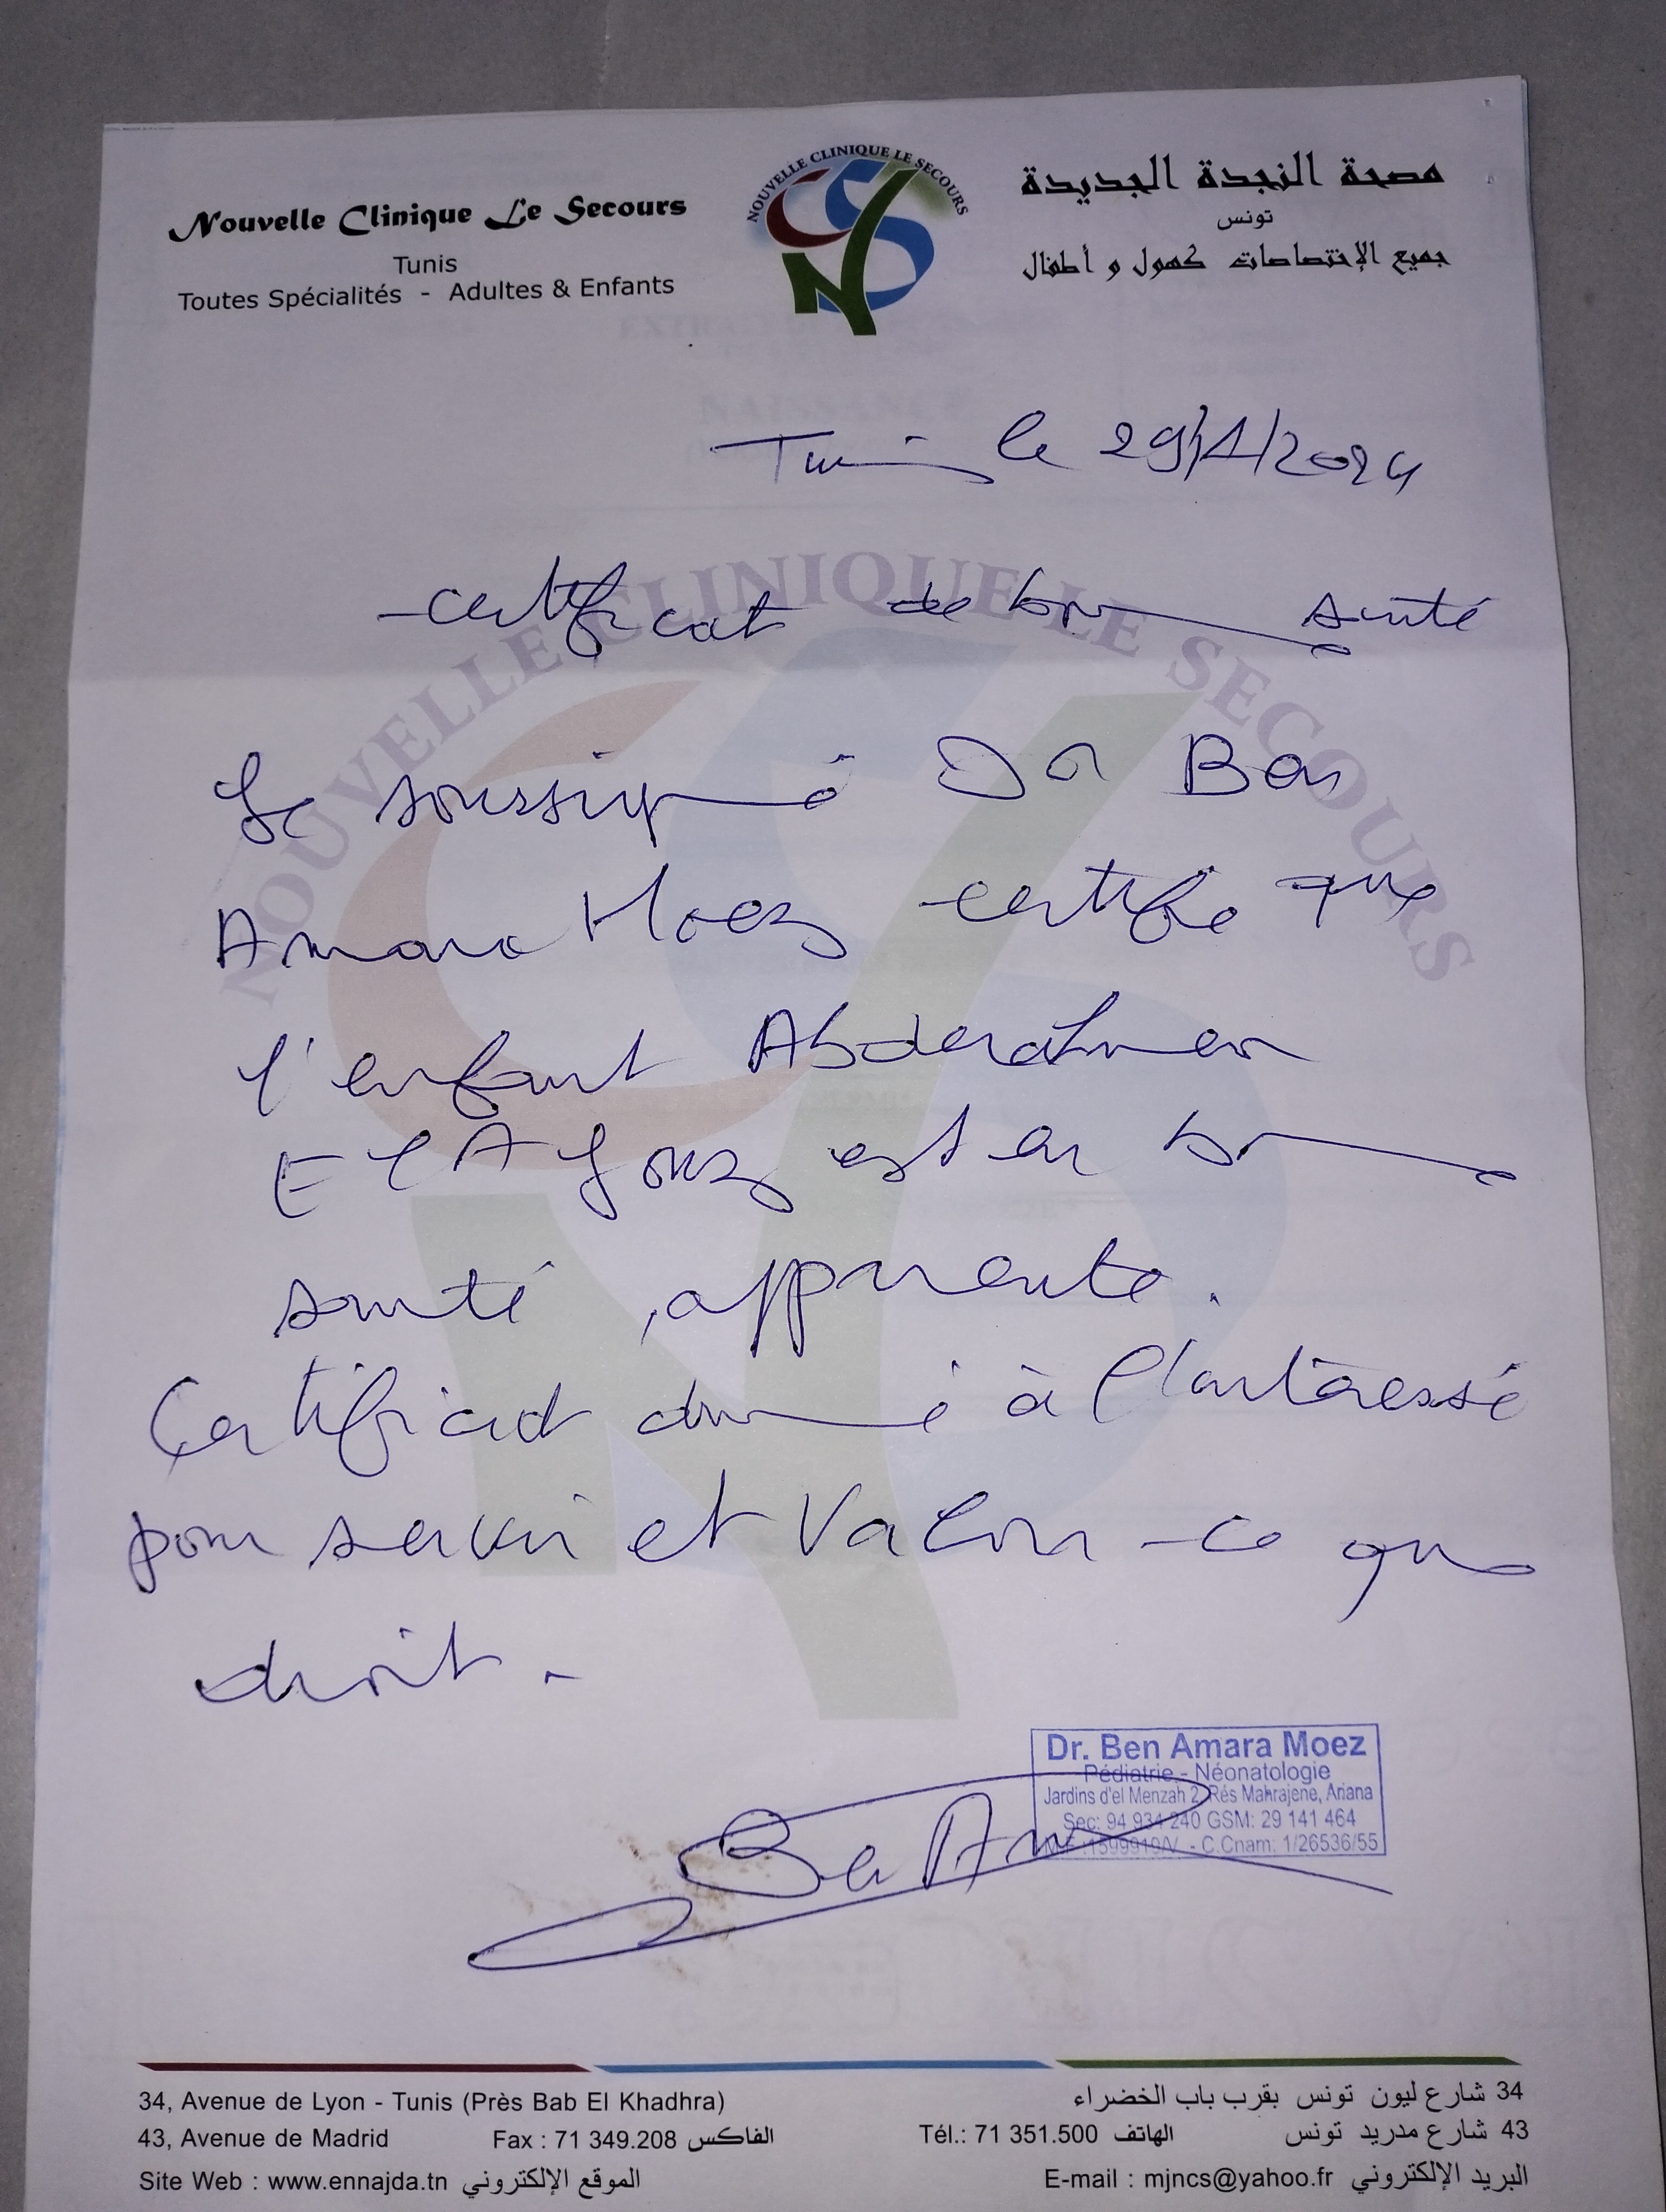 Nouvelle Clinique Le Secours
Tunis
Toutes Spécialités - Adultes & Enfants
NOUVELLE CLINIQUE LE SECOURS
مصحة النجدة الجديدة
تونس
جميع الإختصاصات كهول و أطفال
Tunis le 29/1/2024
certificat de bonne santé
NOUVELLE CLINIQUE LE SECOURS
Je soussigné Dr Ben
Amara Moez certifie que
l'enfant Abderahmen
est en bonne
santé apparente.
Certificat donné à l'intéressé
pour servir et valoir ce que
droit.
Dr. Ben Amara Moez
Pédiatrie - Néonatologie
Jardins d'el Menzah 2, Rés Mahrajene, Ariana
Sec: 94 934 240 GSM: 29 141 464
- C.Cnam: 1/26536/55
Ben Am
34, Avenue de Lyon - Tunis (Près Bab El Khadhra)
34 شارع ليون تونس بقرب باب الخضراء
43, Avenue de Madrid
Fax : 71 349.208 الفاكس
Tél.: 71 351.500 الهاتف
43 شارع مدريد تونس
Site Web : www.ennajda.tn الموقع الإلكتروني
E-mail : mjncs@yahoo.fr البريد الإلكتروني